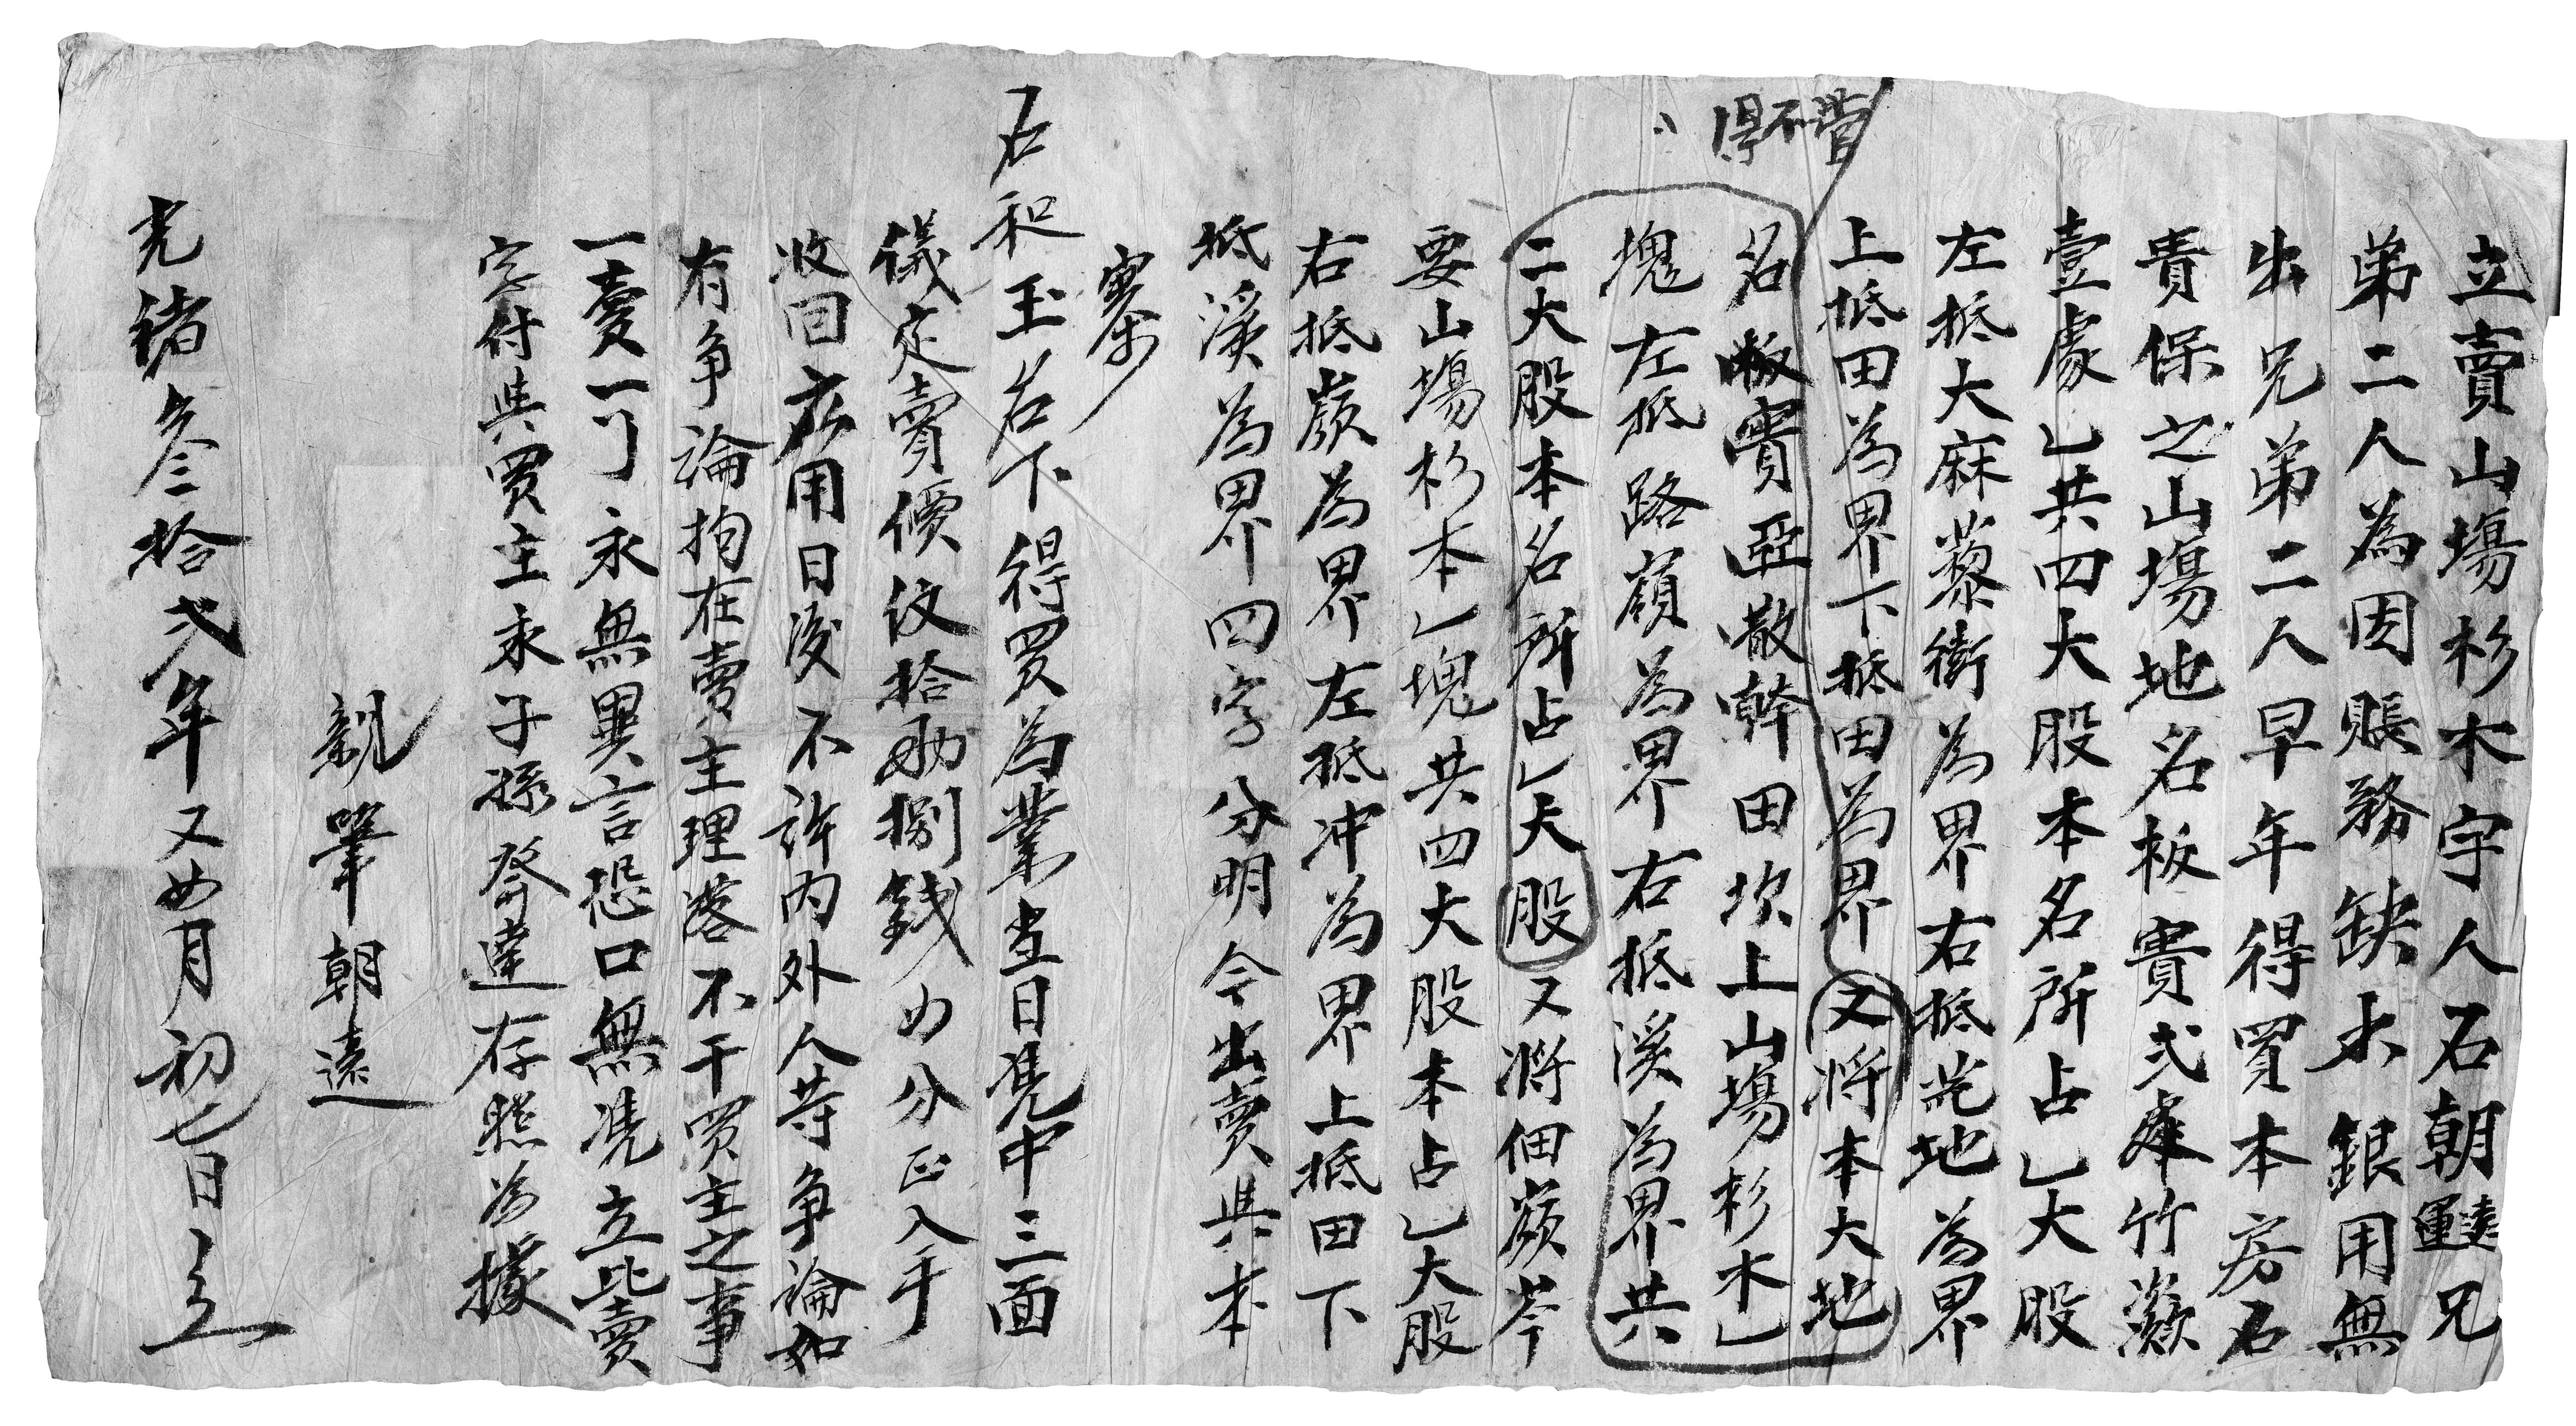 立賣山場杉木字人石朝遠運兄
弟二人為因賬務缺木銀用無
出兄弟二人早年得買本房石
貴保之山場地名板賣弍處竹瀬
壹處乙共四大股本名所占乙大股
左抵大麻藜街為界右抵荒地為界
上抵田為界下抵田為界又將本大地
名板賣亞散幹田坎上山場杉木乙
塊左抵路嶺為界右抵溪為界共
二大股本名所占乙大股又將佃嶺岑
要山場杉本乙塊共四大股本占乙大股
右抵嶺為界左抵冲為界上抵田下
抵溪為界四字分明今出賣與本
寨
石和玉名下得買為業當日憑中三面
儀定賣價紋拾両捌錢力分正入手
收回應用日後不許內外人等爭論如
有爭論拘在賣主理落不干買主之事
一賣一了永無異言恐口無憑立此賣
字付與買主永子孫發達存照為據
親筆朝遠
光緒叁拾弍年又四月初七日立
不得